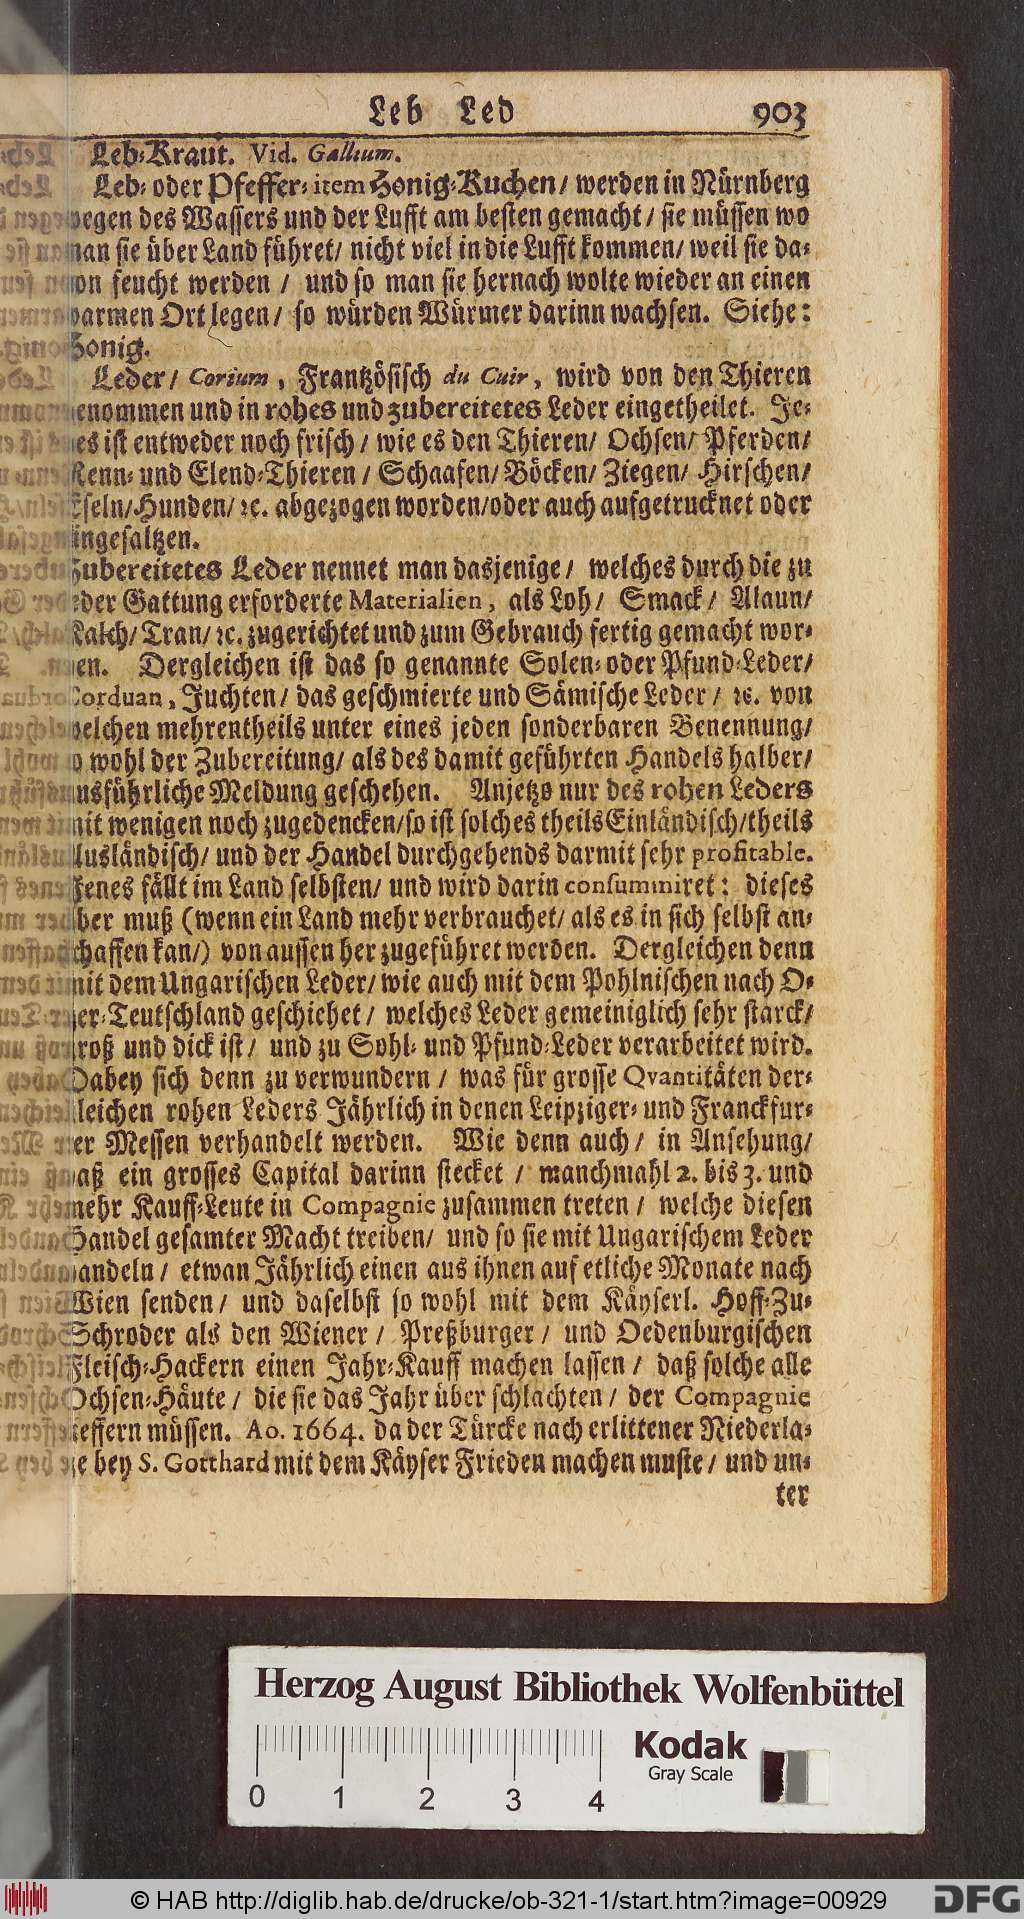 Leb Led 903
Leb-Kraut. Vid. Gallium.
Leb- oder Pfeffer- item Honig-Kuchen/ werden in Nürnberg
wegen des Wassers und der Lufft am besten gemacht/ sie müssen wo
man sie über Land führet/ nicht viel in die Lufft kommen/ weil sie da-
von feucht werden / und so man sie hernach wolte wieder an einen
warmen Ort legen/ so würden Würmer darinn wachsen. Siehe:
Honig.
Leder/ Corium, Frantzösisch du Cuir, wird von den Thieren
genommen und in rohes und zubereitetes Leder eingetheilet. Je-
nes ist entweder noch frisch / wie es den Thieren/ Ochsen/ Pferden/
Renn- und Elend-Thieren / Schaafen/ Böcken/ Ziegen/ Hirschen/
Eseln/ Hunden/ ꝛc. abgezogen worden/oder auch aufgetrucknet oder
eingesaltzen.
Zubereitetes Leder nennet man dasjenige / welches durch die zu
jeder Gattung erforderte Materialien, als Loh/ Smack/ Alaun/
Kalch/ Tran/ ꝛc. zugerichtet und zum Gebrauch fertig gemacht wor-
den. Dergleichen ist das so genannte Solen- oder Pfund-Leder/
Corduan, Juchten/ das geschmierte und Sämische Leder / ꝛc. von
welchen mehrentheils unter eines jeden sonderbaren Benennung/
so wohl der Zubereitung/ als des damit geführten Handels halber/
ausführliche Meldung geschehen. Anjetzo nur des rohen Leders
mit wenigen noch zugedencken/so ist solches theils Einländisch/theils
Ausländisch/ und der Handel durchgehends darmit sehr profitable.
Jenes fällt im Land selbsten/ und wird darin consummiret: dieses
aber muß (wenn ein Land mehr verbrauchet/ als es in sich selbst an-
schaffen kan/) von aussen her zugeführet werden. Dergleichen denn
mit dem Ungarischen Leder/ wie auch mit dem Pohlnischen nach O-
ber-Teutschland geschiehet / welches Leder gemeiniglich sehr starck/
groß und dick ist / und zu Sohl- und Pfund-Leder verarbeitet wird.
Dabey sich denn zu verwundern / was für grosse Qvantitäten der-
gleichen rohen Leders Jährlich in denen Leipziger- und Franckfur-
ter Messen verhandelt werden. Wie denn auch / in Ansehung/
daß ein grosses Capital darinn stecket / manchmahl 2. bis 3. und
mehr Kauff-Leute in Compagnie zusammen treten / welche diesen
Handel gesamter Macht treiben/ und so sie mit Ungarischem Leder
handeln / etwan Jährlich einen aus ihnen auf etliche Monate nach
Wien senden / und daselbst so wohl mit dem Käyserl. Hoff-Zu-
Schroder als den Wiener / Preßburger / und Oedenburgischen
Fleisch-Hackern einen Jahr-Kauff machen lassen / daß solche alle
Ochsen-Häute / die sie das Jahr über schlachten / der Compagnie
lieffern müssen. Ao. 1664. da der Türcke nach erlittener Niederla-
ge bey S. Gotthard mit dem Käyser Frieden machen muste / und un-
ter
Herzog August Bibliothek Wolfenbüttel
Kodak
Gray Scale
0 1 2 3 4
© HAB http://diglib.hab.de/drucke/ob-321-1/start.htm?image=00929
DFG